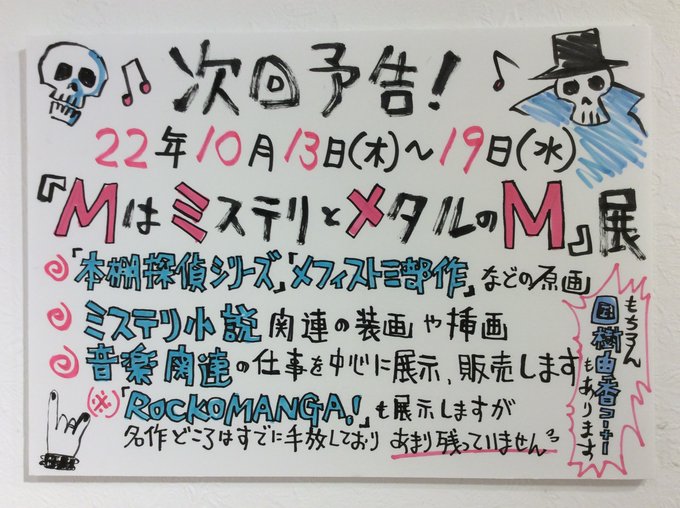 次回予告!
22年10月13日(木)〜19日(水)
『MはミステリとメタルのM』展
「本棚探偵シリーズ」「メフィスト三部作」などの原画
ミステリ小説関連の装画や挿画
音楽関連の仕事を中心に展示、販売します
㊟「ROCKOMANGA!」も展示しますが
名作どころはすでに手放しており あまり残っていません
もちろん
国樹由香コーナー
もあります